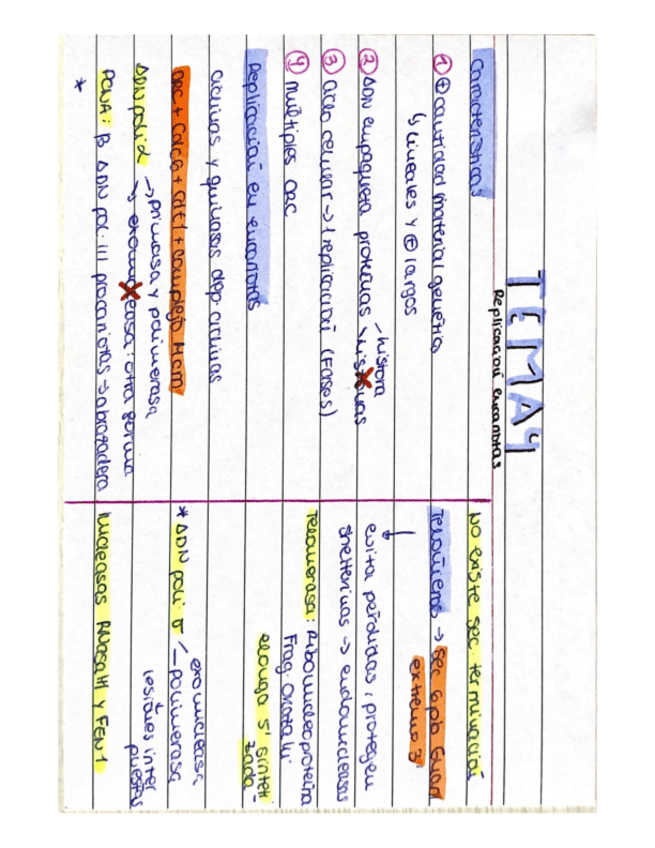 TEMA 4
Replicación eucariotas
Características
① ⊕ cantidad material genético
↳ lineales y ⊕ largos
② ADN empaqueta proteinas - histona
③ ciclo celular -> 1 replicación (Fases)
④ múltiples ORC
Replicación en eucariotas
ciclinas y quinasas dep. ciclinas
ORC + Cdc6 + Cdt1 + complejo Mcm
ADN poli α -> primasa y polimerasa
-> exonucleasa: otra forma
PCNA: β ADN pol. III procariotas -> abrazadera
*
NO existe sec. terminación
Telómeros -> sec 6 pb Guan
extremo 3'
evita pérdidas, protegen
shelterinas -> endonucleasas
Telomerasa: Ribonucleoproteina
Frag. Okazaki
elonga 5' sinteti
zada
* ADN poli σ - exonucleasa
- polimerasa
lesiones inter
puestas
nucleasas RNasa H y FEN1